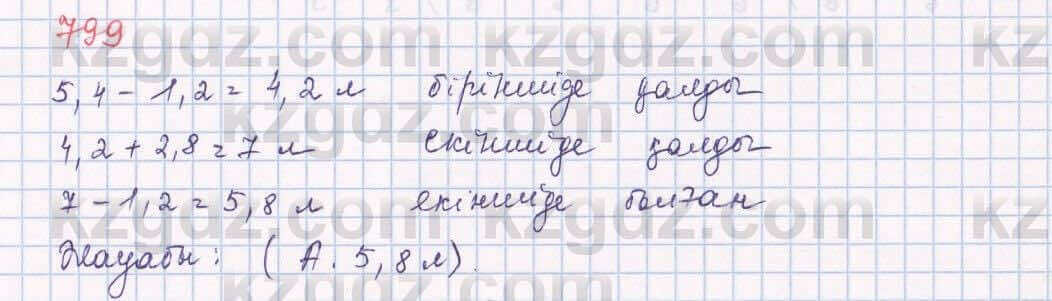 799
5,4 - 1,2 = 4,2 л біріншіде қалды
4,2 + 2,8 = 7 л екіншіде қалды
7 - 1,2 = 5,8 л екіншіде болған
Жауабы: (А. 5,8 л).
kzgdz.com